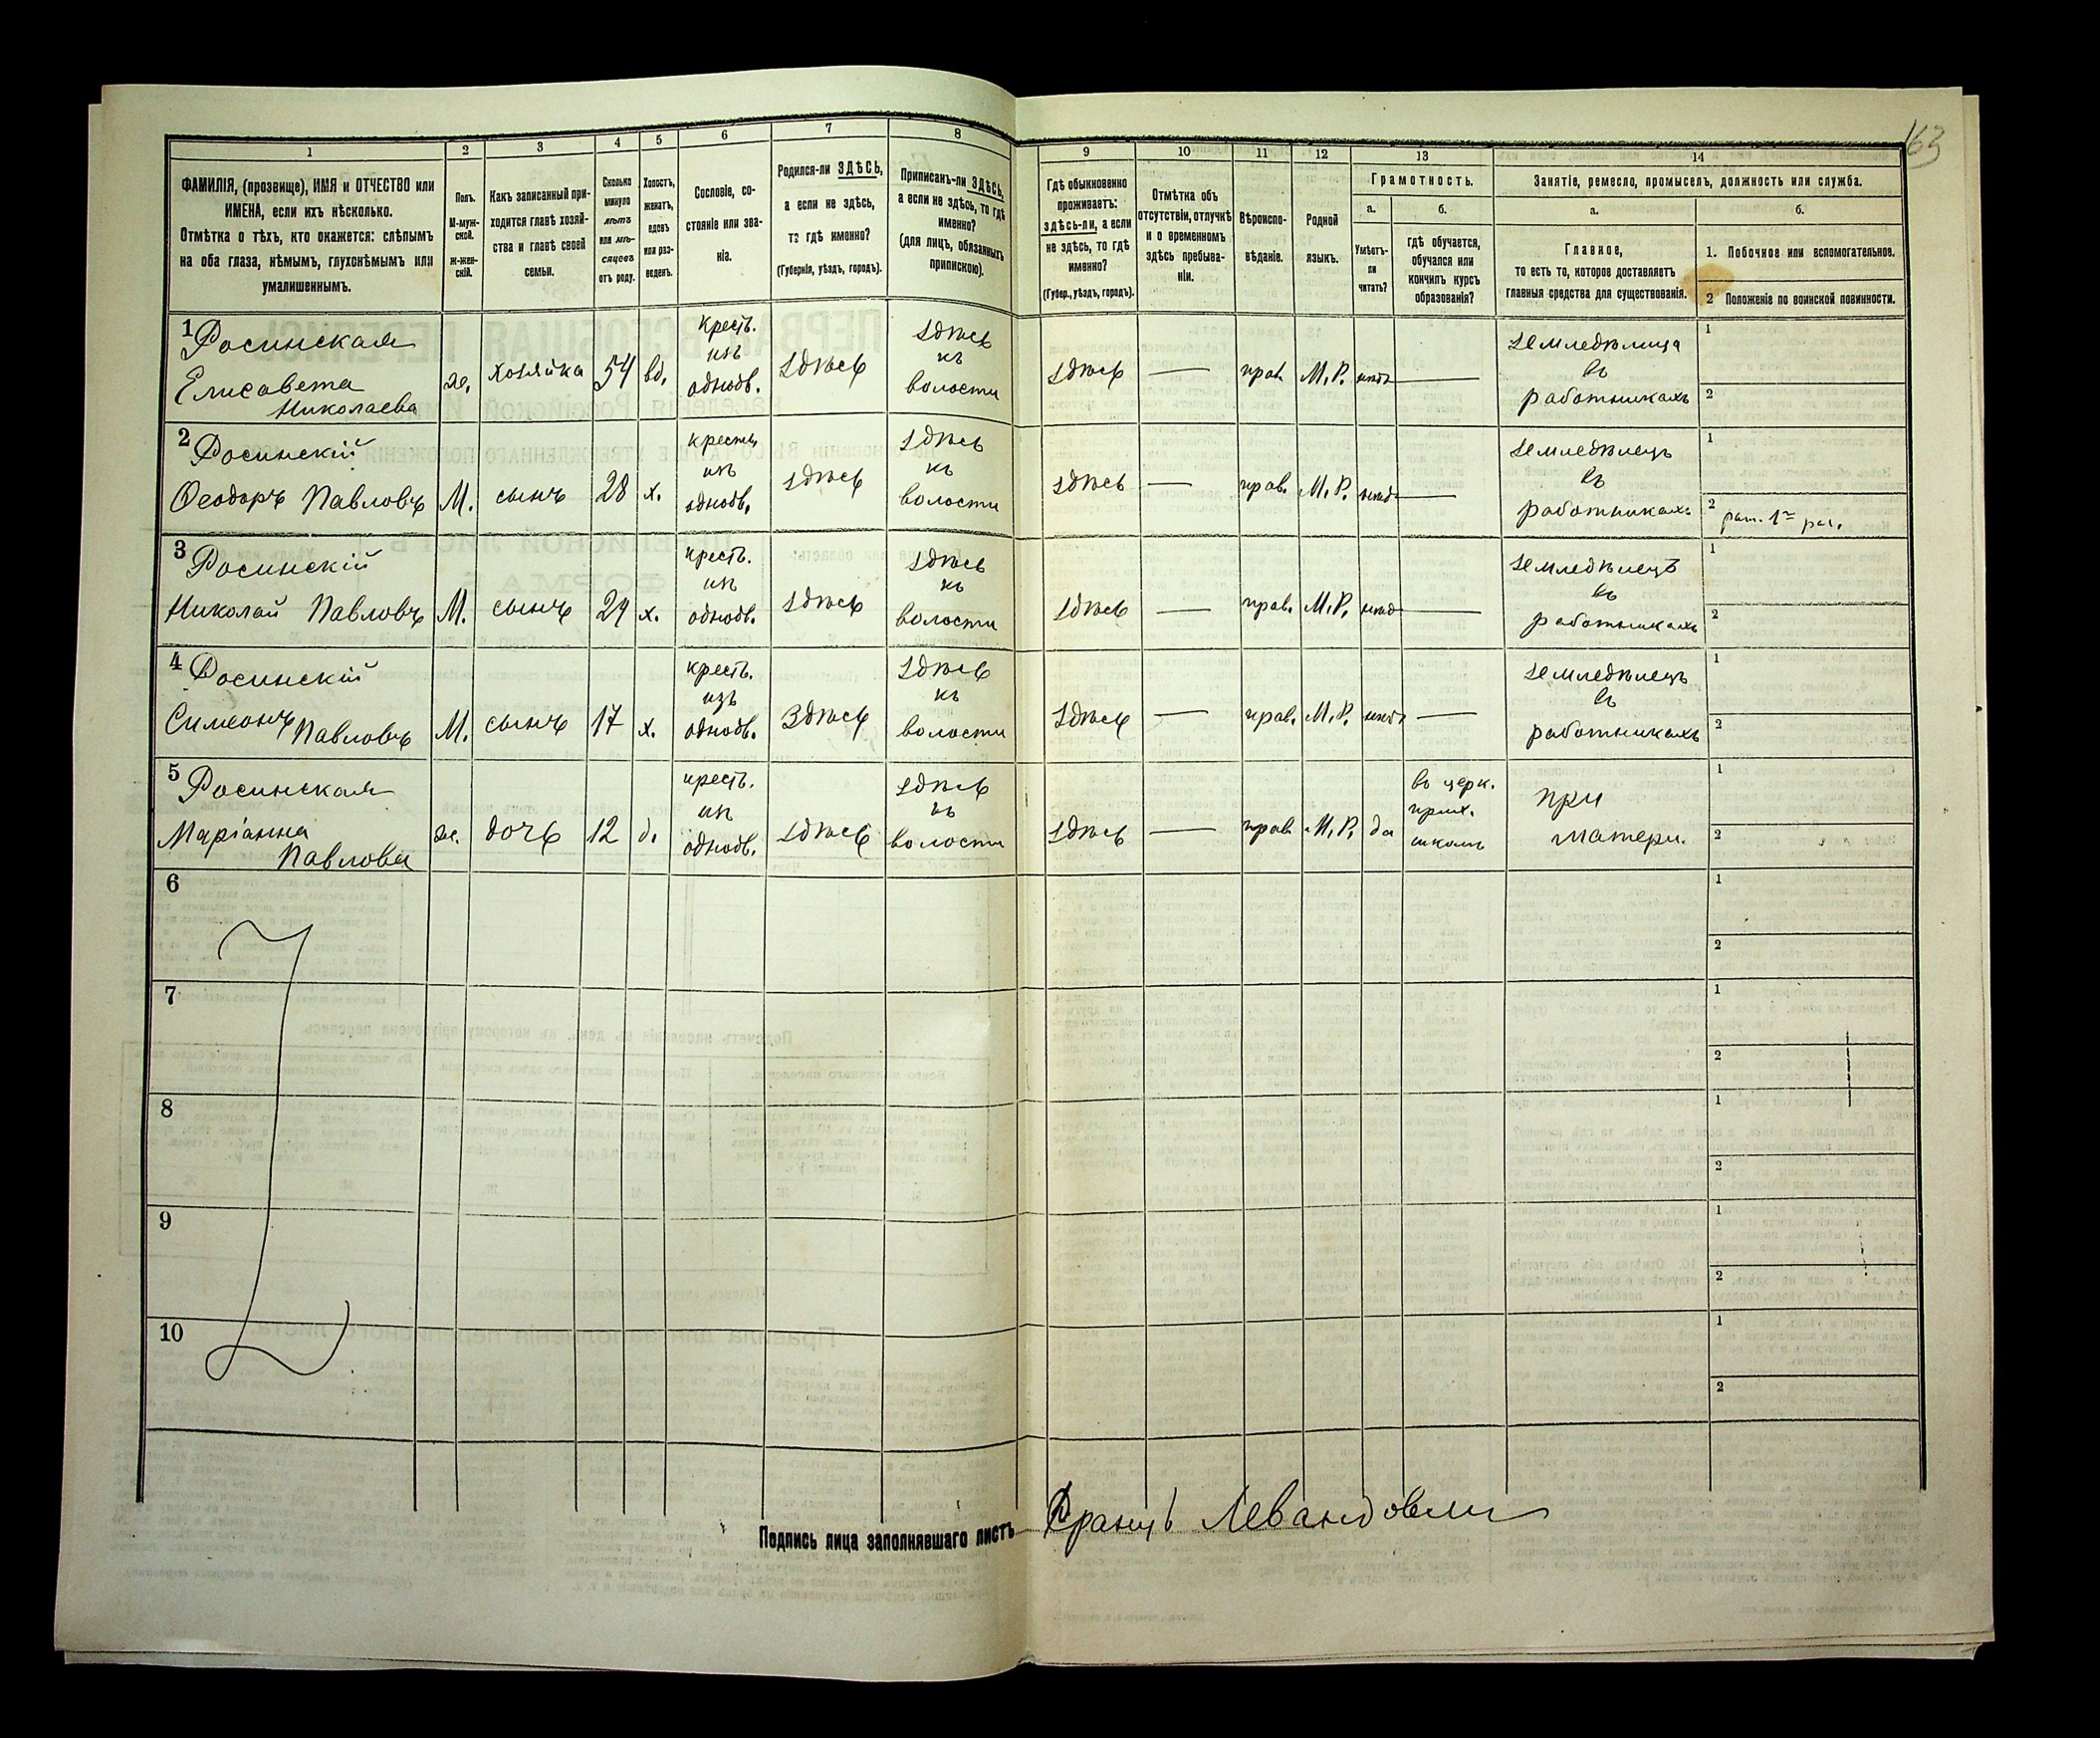 163
1 2 3 4 5 6 7 8
ФАМИЛІЯ, (прозвище), ИМЯ и ОТЧЕСТВО или
ИМЕНА, если ихъ нѣсколько.
Отмѣтка о тѣхъ, кто окажется: слѣпымъ
на оба глаза, нѣмымъ, глухонѣмымъ или
умалишеннымъ.
Полъ.
М-муж-
ской.
ж-жен-
скій.
Какъ записанный при-
ходится главѣ хозяй-
ства и главѣ своей
семьи.
Сколько
минуло
лѣтъ
или мѣ-
сяцевъ
отъ роду.
Холостъ,
женатъ,
вдовъ
или раз-
веденъ.
Сословіе, со-
стояніе или зва-
ніе.
Родился-ли ЗДѢСЬ,
а если не здѣсь,
то гдѣ именно?
(Губернія, уѣздъ, городъ).
Приписанъ-ли ЗДѢСЬ,
а если не здѣсь, то гдѣ
именно?
(для лицъ, обязанныхъ
припискою).
9 10 11 12 13 14
Гдѣ обыкновенно
проживаетъ:
здѣсь-ли, а если
не здѣсь, то гдѣ
именно?
(Губер., уѣздъ, городъ).
Отмѣтка объ
отсутствіи, отлучкѣ
и о временномъ
здѣсь пребыва-
ніи.
Вѣроиспо-
вѣданіе.
Родной
языкъ.
Грамотность.
а.
Умѣетъ-
ли
читать?
б.
гдѣ обучается,
обучался или
кончилъ курсъ
образованія?
Занятіе, ремесло, промыселъ, должность или служба.
а.
Главное,
то есть то, которое доставляетъ
главныя средства для существованія.
б.
1. Побочное или вспомогательное.
2 Положеніе по воинской повинности.
1 Росинская
Елисавета
Николаева
ж. хозяйка 54 вд.
крестъ.
изъ
однодв.
здѣсь
здѣсь
къ
волости
здѣсь — прав. М.Р. нѣтъ —
земледѣлица
въ
работникахъ
1
2
2 Росинскій
Ѳеодоръ Павловъ
М. сынъ 28 х.
крестъ.
изъ
однодв.
здѣсь
здѣсь
къ
волости
здѣсь — прав. М.Р. нѣтъ —
земледѣлецъ
въ
работникахъ
1
2 рат. 1го раз.
3 Росинскій
Николай Павловъ
М. сынъ 24 х.
крестъ.
изъ
однодв.
здѣсь
здѣсь
къ
волости
здѣсь — прав. М.Р. нѣтъ —
земледѣлецъ
въ
работникахъ
1
2
4 Росинскій
Симеонъ Павловъ
М. сынъ 17 х.
крестъ.
изъ
однодв.
здѣсь
здѣсь
къ
волости
здѣсь — прав. М.Р. нѣтъ —
земледѣлецъ
въ
работникахъ
1
2
5 Росинская
Маріанна
Павлова
ж. дочь 12 д.
крестъ.
изъ
однодв.
здѣсь
здѣсь
къ
волости
здѣсь — прав. М.Р. да
въ церк.
прих.
школѣ
при
матери.
1
2
6
1
2
7
1
2
8
1
2
9
1
2
10
1
2
Подпись лица заполнявшаго листъ Францъ Левандовски